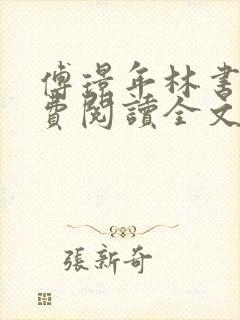 傅璟年林書
費閱讀全文
張新奇